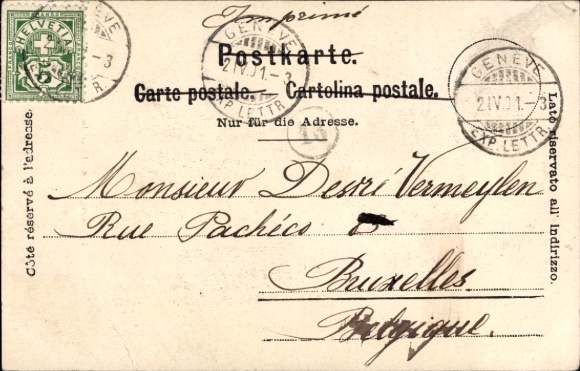 HELVETIA
5
Imprimé
GENÈVE
2.IV.01.-3
EXP. LETTR.
Postkarte.
Carte postale. Cartolina postale.
Nur für die Adresse.
13
GENÈVE
2.IV.01.-3
EXP. LETTR.
Côté réservé à l'adresse.
Lato riservato all' indirizzo.
Monsieur Desiré Vermeylen
Rue Pachéco
Bruxelles
Belgique.